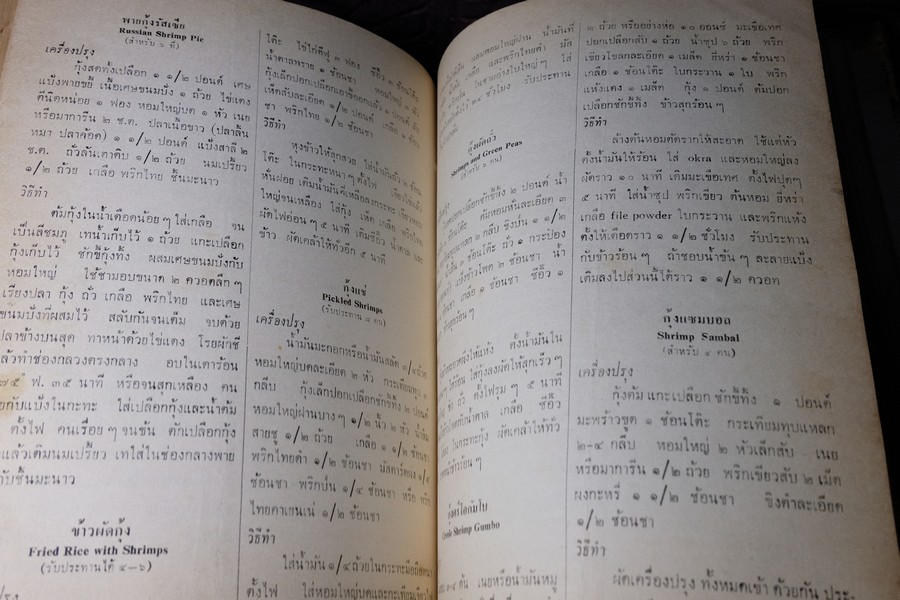 พายกุ้งรัสเซีย
Russian Shrimp Pie
(สำหรับ ๖ ที่)
เครื่องปรุง
กุ้งสดทั้งเปลือก ๑ ๑/๒ ปอนด์ เศษ
แป้งพายขยี้ เนื้อเศษขนมปัง ๑ ถ้วย ไข่แดง
ตีนิดหน่อย ๑ ฟอง หอมใหญ่บด ๑ หัว เนย
หรือมาการีน ๒ ช.ต. ปลาเนื้อขาว (ปลาลิ้น
หมา ปลาค้อด) ๑ ๑/๒ ปอนด์ แป้งสาลี ๒
ช.ต. ถั่วลันเตาดิบ ๑/๒ ถ้วย นมเปรี้ยว
๑/๒ ถ้วย เกลือ พริกไทย ชิ้นมะนาว
วิธีทำ
ต้มกุ้งในน้ำเดือดน้อยๆ ใส่เกลือ จน
เป็นสีชมภู เทน้ำเก็บไว้ ๑ ถ้วย แกะเปลือก
กุ้งเก็บไว้ ชักขี้กุ้งทิ้ง ผสมเศษขนมปังกับ
หอมใหญ่ ใช้ชามอบขนาด ๒ ควอตลึกๆ
เรียงปลา กุ้ง ถั่ว เกลือ พริกไทย และเศษ
ขนมปังที่ผสมไว้ สลับกันจนเต็ม จบด้วย
ปลาข้างบนสุด ทาหน้าด้วยไข่แดง โรยผักชี
แล้วทำช่องกลวงตรงกลาง อบในเตาร้อน
๓๗๕ ฟ. ๓๕ นาที หรือจนสุกเหลือง คน
เนยกับแป้งในกะทะ ใส่เปลือกกุ้งและน้ำต้ม
ตั้งไฟ คนเรื่อยๆ จนข้น ตักเปลือกกุ้ง
แล้วเติมนมเปรี้ยว เทใส่ในช่องกลางพาย
กับชิ้นมะนาว
ข้าวผัดกุ้ง
Fried Rice with Shrimps
(รับประทานได้ ๔-๖)
ปรุง
โต๊ะ ไข่ไก่ตีฟู ๓ ฟอง ซีอิ้ว ๑ ช้อนโต๊ะ
น้ำตาลทราย ๑ ช้อนชา หอมใหญ่ ๑ หัว
กุ้งเล็กปอกเปลือกเอาขี้ออกแล้ว ๑ ปอนด์
เห็ดสับละเอียด ๑/๒ ปอนด์ เกลือ ๑ ช้อน
ชา พริกไทย ๑/๒ ช้อนชา
วิธีทำ
หุงข้าวให้สุกสวย ใส่น้ำมันถั่ว ๒ ช้อน
โต๊ะ ในกระทะหนาๆ ตั้งไฟ เจียวไข่
หั่นฝอย เติมน้ำมันที่เหลือลงกะทะ เจียวหอม
ใหญ่จนเหลือง ใส่กุ้ง เห็ด เกลือ พริกไทย
ผัดไฟอ่อนๆ ๕ นาที เติมซีอิ้ว น้ำตาล และ
ข้าว ผัดเคล้าให้ทั่วอีก ๕ นาที
กุ้งแช่
Pickled Shrimps
(รับประทาน ๘ คน)
เครื่องปรุง
น้ำมันมะกอกหรือน้ำมันสลัด ๑/๔ ถ้วย
หอมใหญ่บดละเอียด ๒ หัว กระเทียมทุบ ๓
กลีบ กุ้งเล็กปอกเปลือกชักขี้ทิ้ง ๒ ปอนด์
หอมใหญ่ผ่านบางๆ ๑/๒ นิ้ว ๒ หัว น้ำส้ม
สายชู ๑/๒ ถ้วย เกลือ ๑ ๑/๒ ช้อนชา
พริกไทยดำ ๑/๒ ช้อนชา มัสตาร์ดผง ๑/๔
ช้อนชา พริกป่น ๑/๔ ช้อนชา หรือ พริก
ไทยคาเยนเน่ ๑/๒ ช้อนชา
วิธีทำ
ใส่น้ำมัน ๑/๔ ถ้วยในกระทะมีถือมีหู
ตั้งไฟ ใส่หอมใหญ่บดและกระเทียมเจียว
ผสมหอมใหญ่ผ่าน น้ำมันที่
เกลือ และพริกไทยดำ มัส
ในชามอ่างใบใหญ่ๆ ใส่
๒๔ ชั่วโมง รับประทาน
กุ้งผัดถั่ว
Shrimps and Green Peas
(สำหรับ ๖ คน)
ปอกเปลือกชักขี้ทิ้ง ๒ ปอนด์ น้ำ
โต๊ะ ต้มหอมหั่นละเอียด ๓
๒ กลีบ ขิงป่น ๑ ๑/๒
๒ ช้อนโต๊ะ ถั่ว ๑ กระป๋อง
แป้งข้าวโพด ๒ ช้อนชา น้ำ
เกลือ ๑ ช้อนชา ซีอิ้ว ๑
ให้แห้ง ตั้งน้ำมันใน
ให้ร้อน ใส่กุ้งลงผัดให้สุกเร็วๆ
ขิง ถั่ว ตั้งไฟรุมๆ ๕ นาที
น้ำตาล เกลือ ซีอิ้ว
ในกระทะกุ้ง ผัดเคล้าให้ทั่ว
Creole Shrimp Gumbo
๓-๔ คน เนยหรือน้ำมันหมู
๒ ถ้วย หรืออย่างห่อ ๑๐ ออนซ์ มะเขือเทศ
ปอกเปลือกสับ ๑ ถ้วย น้ำซุป ๖ ถ้วย พริก
เขียวโขลกละเอียด ๑ เมล็ด ยี่หร่า ๑ ช้อนชา
เกลือ ๑ ช้อนโต๊ะ ใบกระวาน ๑ ใบ พริก
แห้งแดง ๑ เมล็ด กุ้ง ๑ ปอนด์ ต้มปอก
เปลือกชักขี้ทิ้ง ข้าวสุกร้อนๆ
วิธีทำ
ล้างต้นหอมตัดรากให้สะอาด ใช้แต่หัว
ตั้งน้ำมันให้ร้อน ใส่ okra และหอมใหญ่ลง
ผัดราว ๑๐ นาที เติมมะเขือเทศ ตั้งไฟปุดๆ
๕ นาที ใส่น้ำซุป พริกเขียว ต้นหอม ยี่หร่า
เกลือ file powder ใบกระวาน และพริกแห้ง
ตั้งให้เดือดราว ๑ ๑/๒ ชั่วโมง รับประทาน
กับข้าวร้อนๆ ถ้าชอบน้ำข้นๆ ละลายแป้ง
เติมลงไปส่วนนี้ได้ราว ๑ ๑/๒ ควอท
กุ้งแซมบอล
Shrimp Sambal
(สำหรับ ๔ คน)
เครื่องปรุง
กุ้งต้ม แกะเปลือก ชักขี้ทิ้ง ๑ ปอนด์
มะพร้าวขูด ๑ ช้อนโต๊ะ กระเทียมทุบแหลก
๒-๔ กลีบ หอมใหญ่ ๒ หัวเล็กสับ เนย
หรือมาการีน ๑/๒ ถ้วย พริกเขียวสับ ๒ เม็ด
ผงกะหรี่ ๑ ๑/๒ ช้อนชา ขิงตำละเอียด
๑/๒ ช้อนชา
วิธีทำ
ผัดเครื่องปรุง ทั้งหมดเข้า ด้วยกัน ประ-